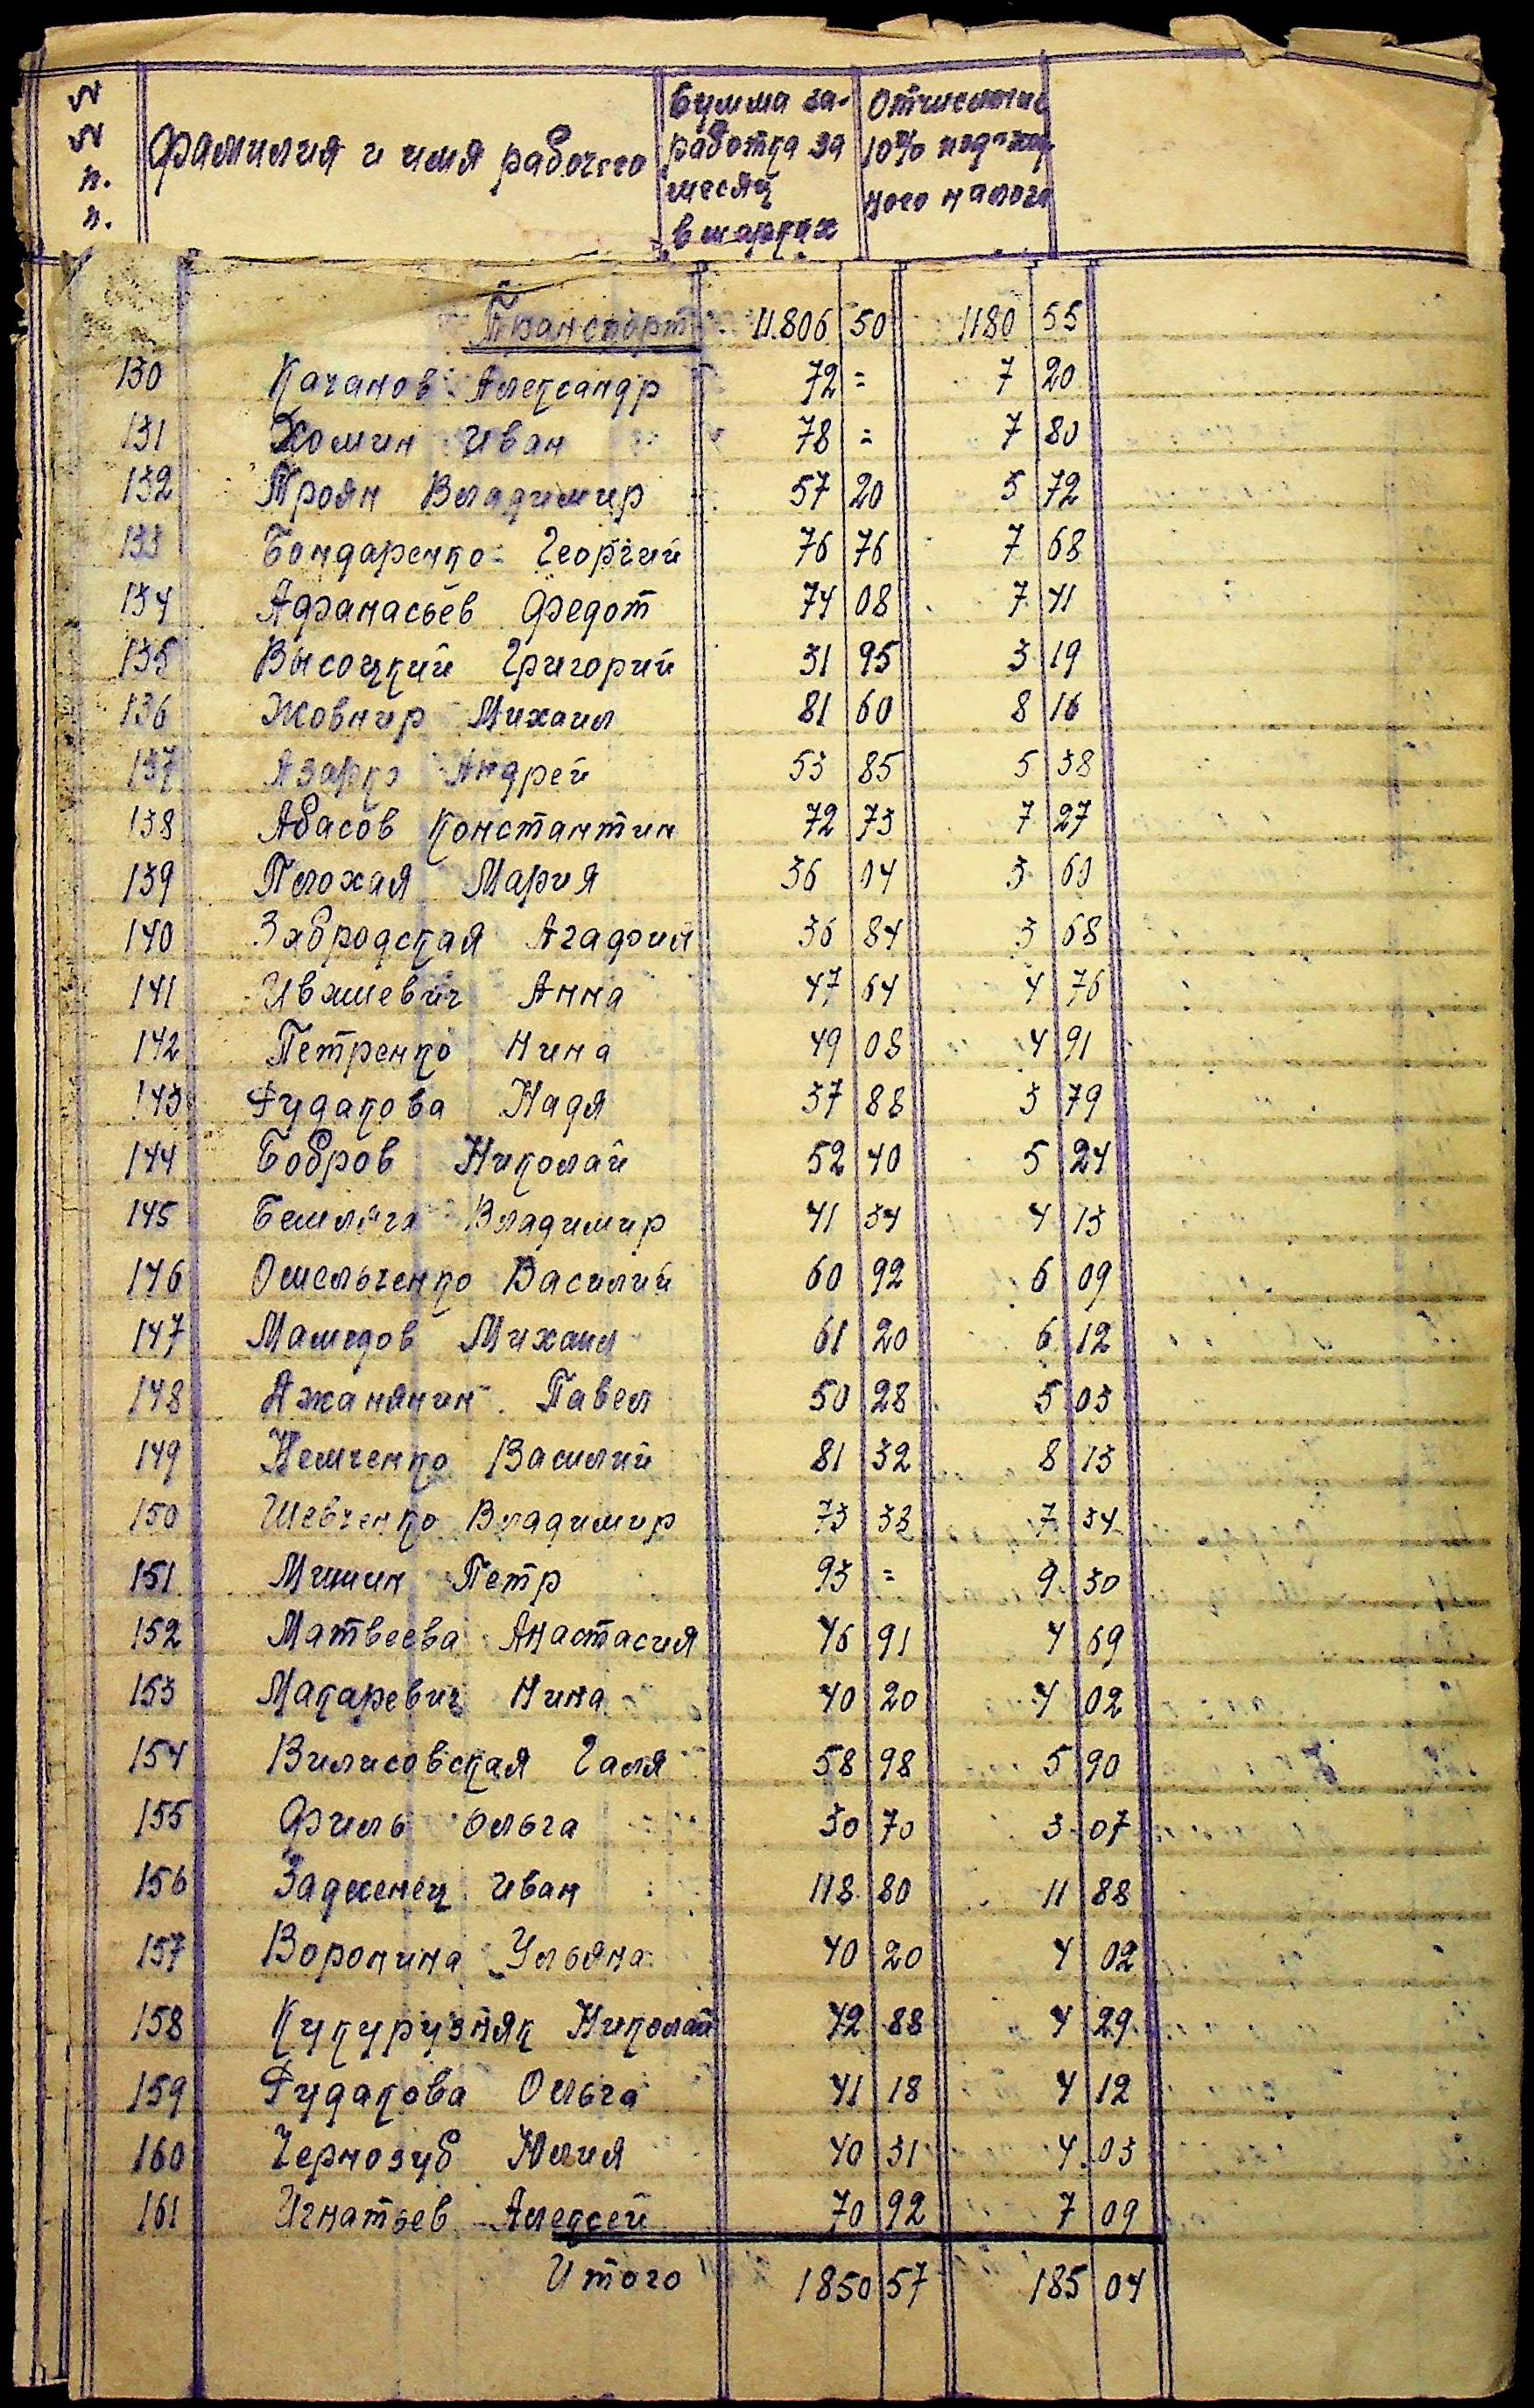 №
№
п.
п.
Фамилия и имя рабочего
Сумма за-
работка за
месяц
в марках
Отчисление
10% подоход-
ного налога
Транспорт 11.806 50 1180 55
130 Качанов Александр 72 = 7 20
131 Хомин Иван 78 = 7 80
132 Троян Владимир 57 20 5 72
133 Бондаренко Георгий 76 76 7 68
134 Афанасьев Федот 74 08 7 41
135 Высоцкий Григорий 31 95 3 19
136 Жовнир Михаил 81 60 8 16
137 Азарко Андрей 53 85 5 38
138 Абасов Константин 72 73 7 27
139 Плохая Мария 36 04 3 60
140 Забродская Агафия 36 84 3 68
141 Ивашевич Анна 47 64 4 76
142 Петренко Нина 49 08 4 91
143 Рудакова Надя 37 88 3 79
144 Бобров Николай 52 40 5 24
145 Бемляга Владимир 41 34 4 13
146 Омельченко Василий 60 92 6 09
147 Мамедов Михаил 61 20 6 12
148 Ажанянин Павел 50 28 5 03
149 Немченко Василий 81 32 8 13
150 Шевченко Владимир 73 33 7 34
151 Мишин Петр 93 = 9 30
152 Матвеева Анастасия 46 91 4 69
153 Макаревич Нина 40 20 4 02
154 Вилисовская Галя 58 98 5 90
155 Филь Ольга 30 70 3 07
156 Задженец Иван 118 80 11 88
157 Воронина Ульяна 40 20 4 02
158 Кукурузняк Николай 42 88 4 29
159 Рудакова Ольга 41 18 4 12
160 Чернозуб Юлия 40 31 4 03
161 Игнатьев Алексей 70 92 7 09
Итого 1850 57 185 04